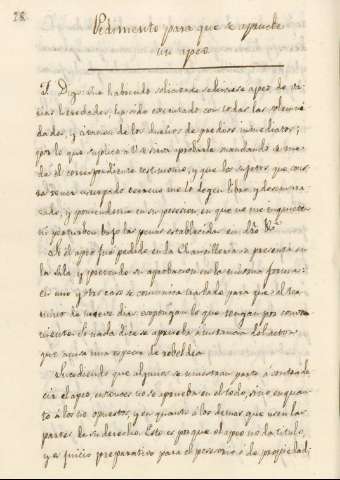 28
Pedimento para que se apruebe
un apeo
F. Digo: que habiendo solicitado se hiciese apeo de va-
rias heredades, ha sido ejecutado con todas las solemni-
dades, y citacion de los dueños de predios inmediatos;
por lo que suplico a V. se sirva aprobarle mandando se me
dé el correspondiente testimonio, y que los sujetos que cons-
ta tener usurpado terreno me lo dejen libre y desembara-
zado, y poniendome en su posesion, en que no me inquieten
ni perturben bajo las penas establecidas en dro. &a.
Si el apeo fue pedido en la Chancilleria se presenta en
la Sala y pretende su aprobacion en la misma forma:
en uno y otro caso se comunica traslado para que al ter-
mino de nueve dias expongan lo que tengan por conve-
niente. Si nada dice se aprueba a instancia del actor
que acusa una especie de rebeldia
Sucediendo que algunos se muestran parte a contrade-
cir el apeo entonces no se aprueba en el todo, sino en quan-
to á los no opuestos, y en quanto á los demas que usen las
partes de su derecho. Esto es porque el apeo no da titulo,
y es juicio preparativo para el posesorio ó de propiedad;